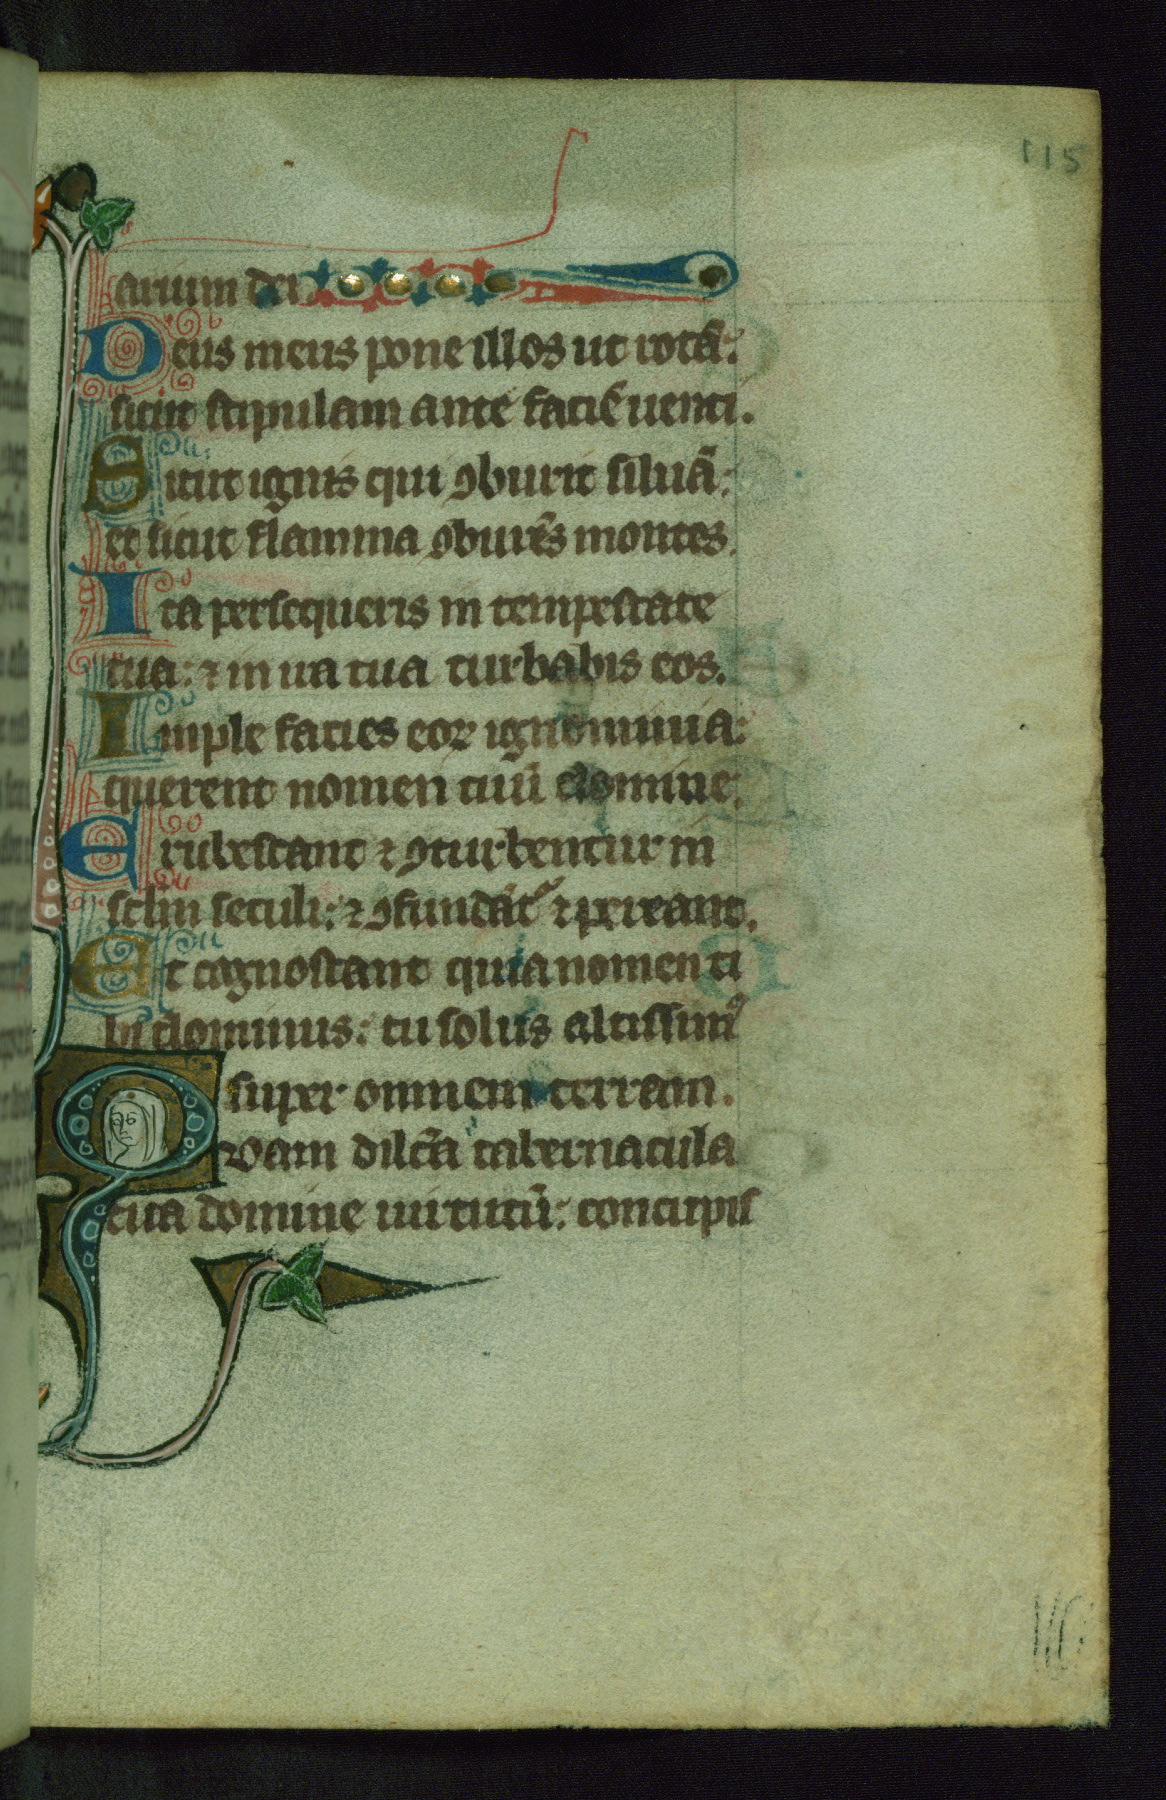 115
arium dei
Deus meus pone illos ut rotā:
sicut stipulam ante faciē uenti.
Sicut ignis qui ꝯburit siluā:
et sicut flamma ꝯburēs montes.
Ita persequeris in tempestate
tua: ⁊ in ira tua turbabis eos.
Imple facies eoꝝ ignominia:
querent nomen tuū domine:
Erubescant ⁊ ꝯturbentur in
sclm seculi: ⁊ ꝯfundāt᷑ ⁊ pereant.
Et cognoscant quia nomen ti
bi dominus: tu solus altissimꝰ
super omnem terram.
Quam dilcā tabernacula
tua domine uirtutū: concupis